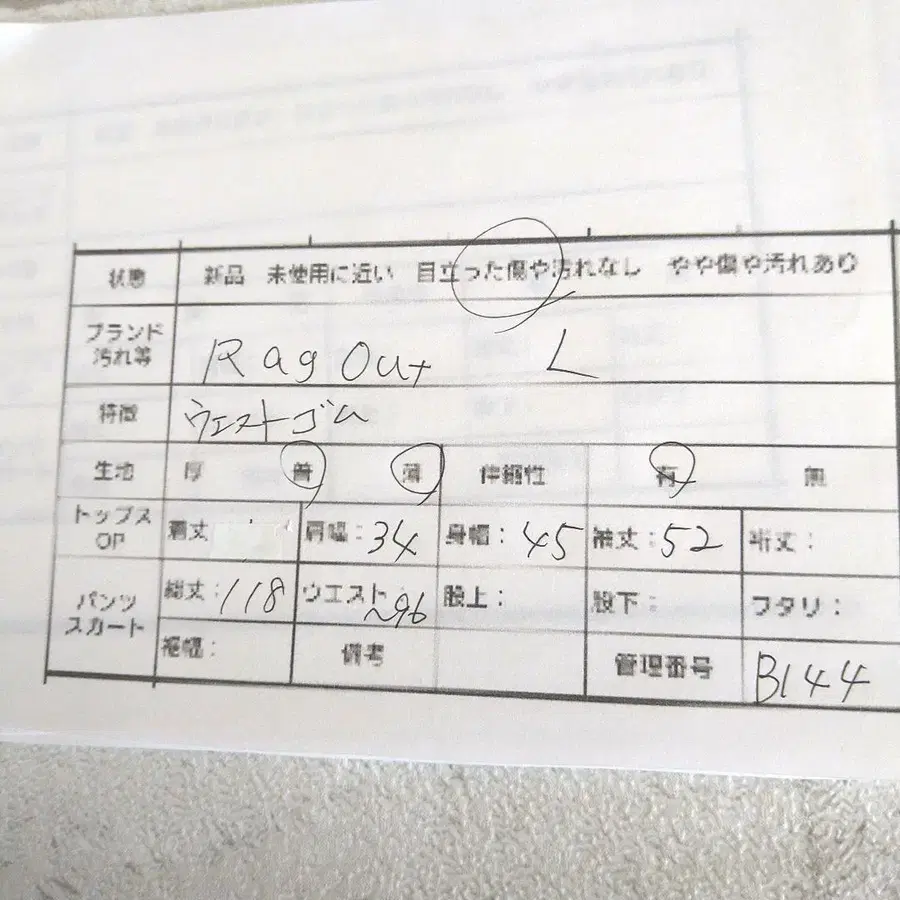 状態 新品 未使用に近い 目立った傷や汚れなし やや傷や汚れあり
ブランド
汚れ等
Rag Out L
特徴 ウエストゴム
生地 厚 普 薄 伸縮性 有 無
トップス
OP
着丈 肩幅:34 身幅:45 袖丈:52 裄丈:
パンツ
スカート
総丈:118 ウエスト:~96 股上: 股下: ワタリ:
裾幅: 備考 管理番号 B144